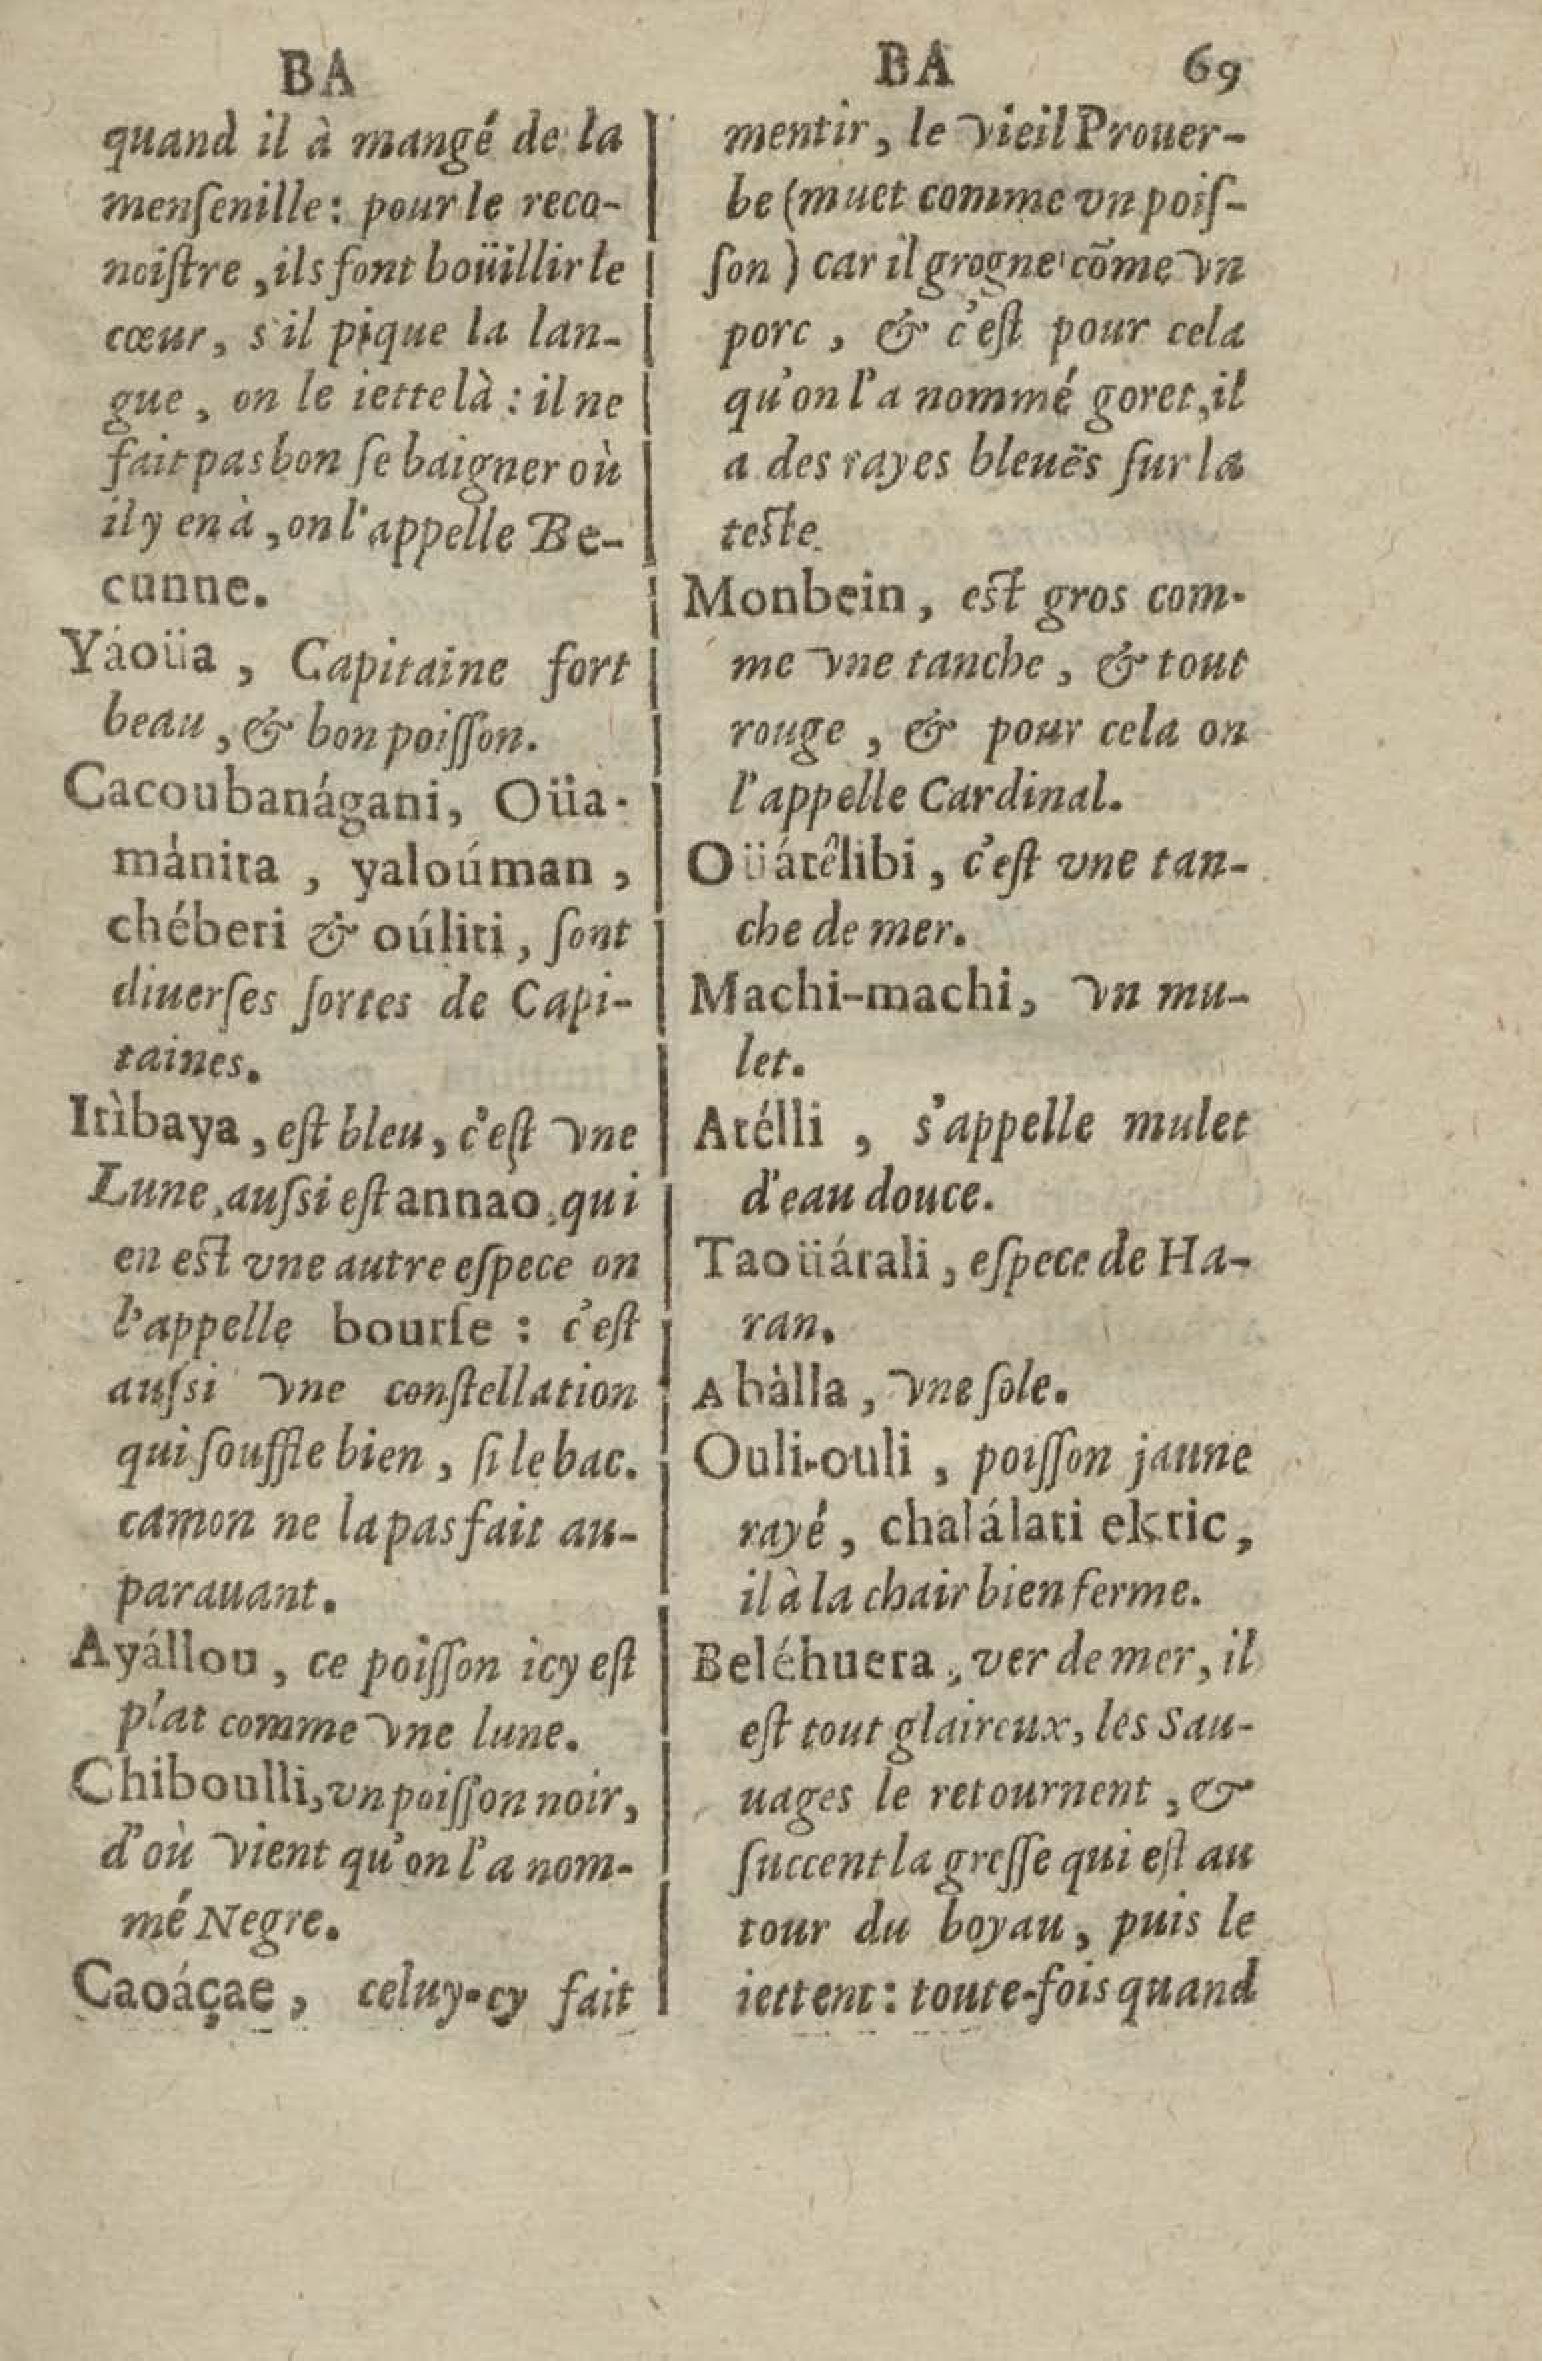 BA
quand il à mangé de la
menſenille: pour le reco-
noiſtre, ils font boüillir le
cœur, s'il pique la lan-
gue, on le iette là: il ne
fait pas bon ſe baigner où
il y en à, on l'appelle Be-
cunne.
Yáoüa, Capitaine fort
beau, & bon poiſſon.
Cacoubanágani, Oüa-
mánita, yaloúman,
chéberi & oúliti, ſont
diuerſes ſortes de Capi-
taines.
Itìbaya, eſt bleu, c'eſt vne
Lune, auſsi eſt annao, qui
en eſt vne autre eſpece on
l'appelle bourſe: c'eſt
auſsi vne conſtellation
qui ſouffle bien, ſi le bac.
camon ne la pas fait au-
parauant.
Ayállou, ce poiſſon icy eſt
plat comme vne lune.
Chiboulli, vn poiſſon noir,
d'où vient qu'on l'a nom-
mé Negre.
Caoáçae, celuy-cy fait
BA 69
mentir, le vieil Prouer-
be (muet comme vn poiſ-
ſon) car il grogne cõme vn
porc, & c'eſt pour cela
qu'on l'a nommé goret, il
a des rayes bleuës ſur la
teſte.
Monbein, eſt gros com-
me vne tanche, & tout
rouge, & pour cela on
l'appelle Cardinal.
Oüátêlibi, c'eſt vne tan-
che de mer.
Machi-machi, vn mu-
let.
Atélli, s'appelle mulet
d'eau douce.
Taoüárali, eſpece de Ha-
ran.
Abàlla, vne ſole.
Ouli-ouli, poiſſon jaune
rayé, chalálati ektic,
il à la chair bien ferme.
Beléhuera, ver de mer, il
eſt tout glaireux, les Sau-
uages le retournent, &
ſuccent la greſſe qui eſt au
tour du boyau, puis le
iettent: toute-fois quand